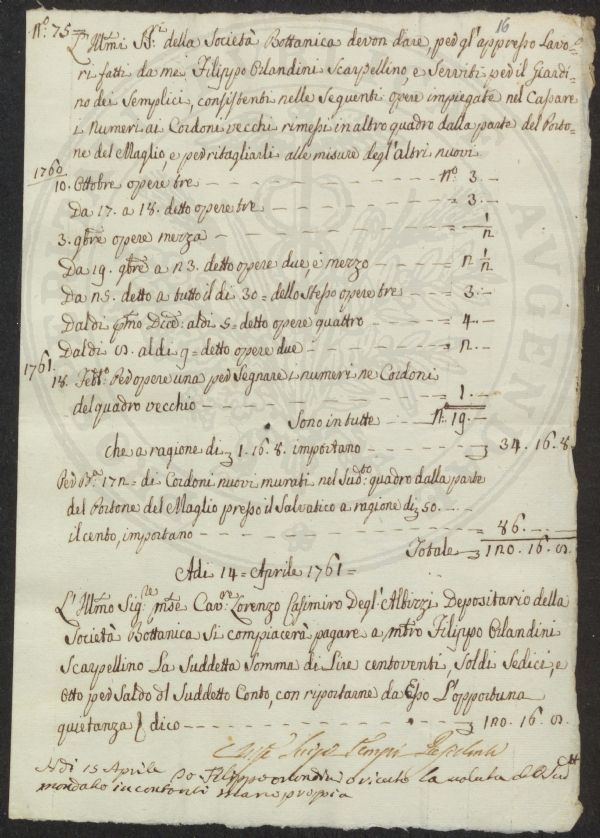 N.º 75
16
L'Ill.mi SS.ri della Società Bottanica devon dare, ped gl'appresso Lavo=
ri fatti da me Filippo Orlandini Scarpellino, e Serviti ped il Giardi=
no dei Semplici, consistenti nelle Seguenti opere impiegate nel Cassare
i Numeri ai Cordoni vecchi rimessi in altro quadro dalla parte del Porto=
ne del Maglio e ped ritagliarli alle misure degl'altri nuovi
1760
10. Ottobre opere tre — N.º 3. —
Da 17. a 18. detto opere tre — 3. —
3. 9bre opere mezza — 1/2
Da 19. 9bre a 23. detto opere due, e mezzo — 2 1/2
Da 25. detto a tutto il dì 30 = dello Stesso opere tre — 3. —
Dal dì p.mo Dice. al dì 5 = detto opere quattro — 4. —
Dal dì 8. al dì 9 = detto opere due — 2. —
1761.
18. Febb.º Ped opere una ped Segnare i numeri ne Cordoni
del quadro vecchio — 1. —
Sono in tutte — N. 19. —
che a ragione di 1. 16. 8. importano — 34. 16. 8
Ped B.a 172 = di Cordoni nuovi murati nel Sud.to quadro dalla parte
del Portone del Maglio presso il Salvatico a ragione di 50. —
il cento, importano — 86. —
Totale — 120. 16. 8.
Adì 14 = Aprile 1761 =
L'Ill.mo Sig.re m.se Cav.re Lorenzo Casimiro Degl'Albizzi Depositario della
Società Bottanica Si compiacerà pagare a m.tro Filippo Orlandini
Scarpellino La Suddetta Somma di Lire centoventi, Soldi Sedici, e
Otto ped Saldo dl Suddetto Conto, con riportarne da Esso L'opportuna
quietanza dico — 120. 16. 8.
Adì 15 Aprile Io Filippo orlandini o riceuto la valuta del Sud
mandato in contanti mano propia